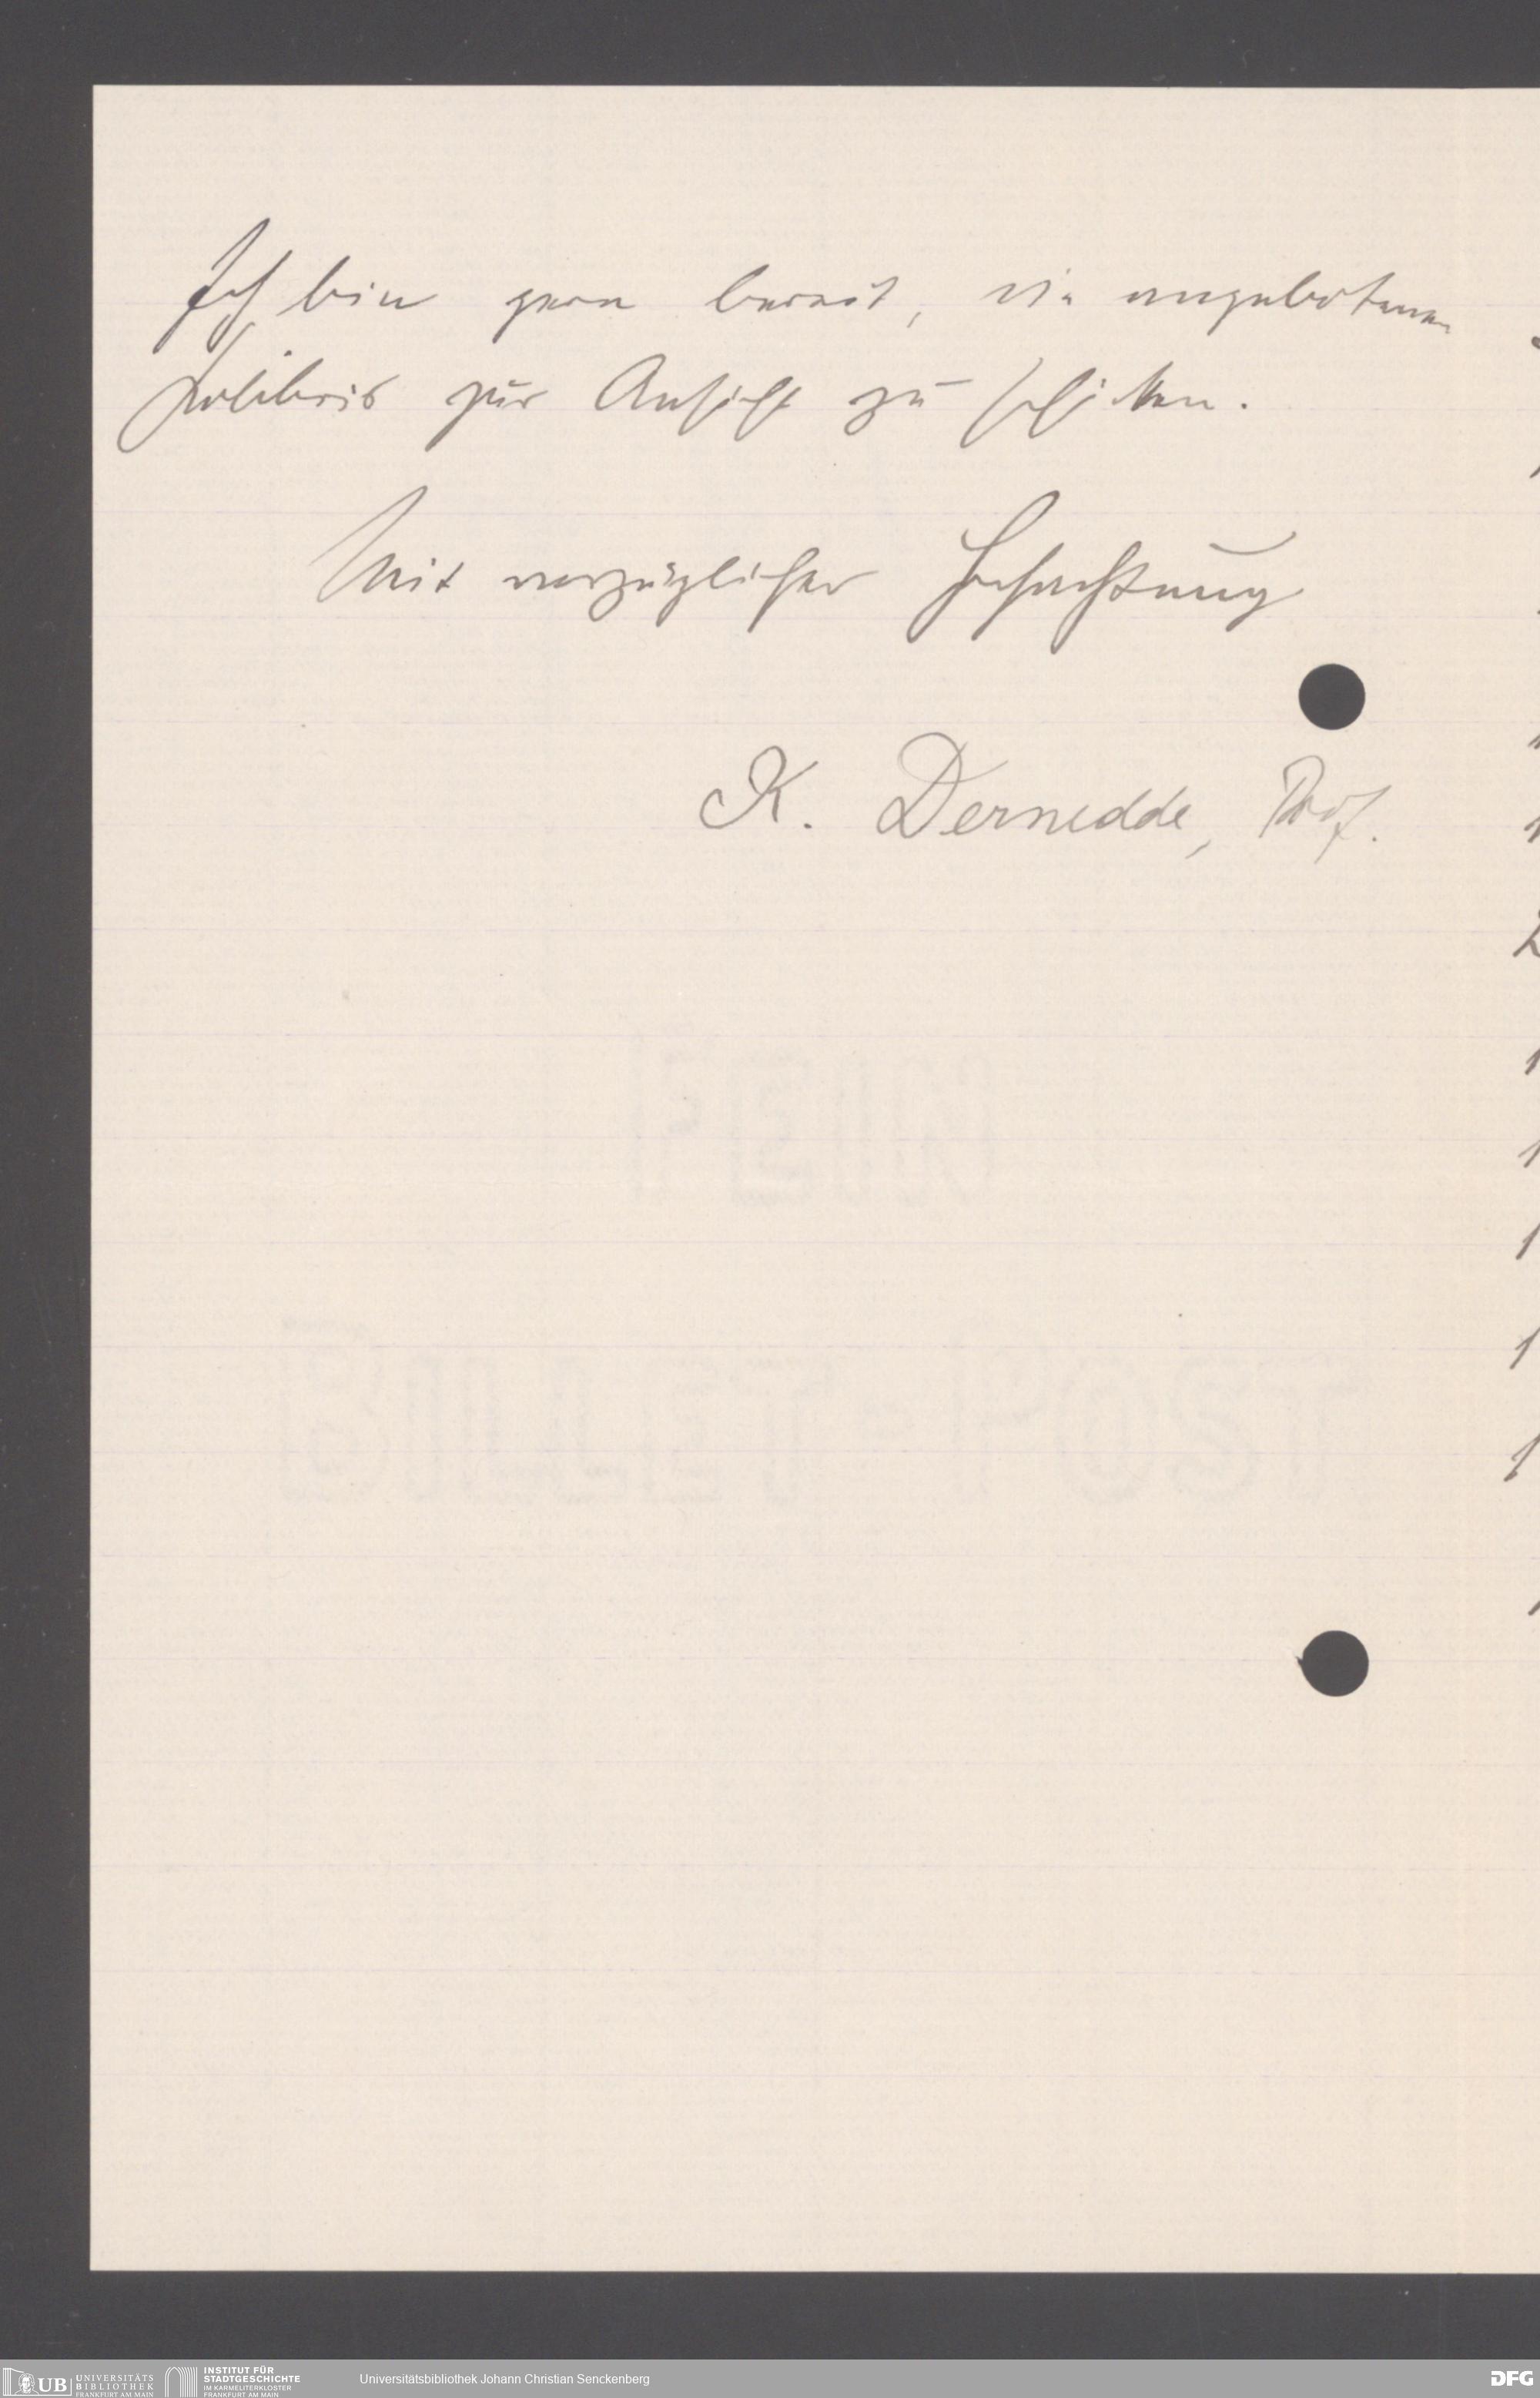 Ich bin gern bereit, die angebotenen
Kolibris zur Ansicht zu schicken.
Mit vorzüglicher Hochachtung
K. Dernedde, Prof.
MEIN
BILLET-POST
UB
UNIVERSITÄTS
BIBLIOTHEK
FRANKFURT AM MAIN
INSTITUT FÜR
STADTGESCHICHTE
IM KARMELITERKLOSTER
FRANKFURT AM MAIN
Universitätsbibliothek Johann Christian Senckenberg
DFG